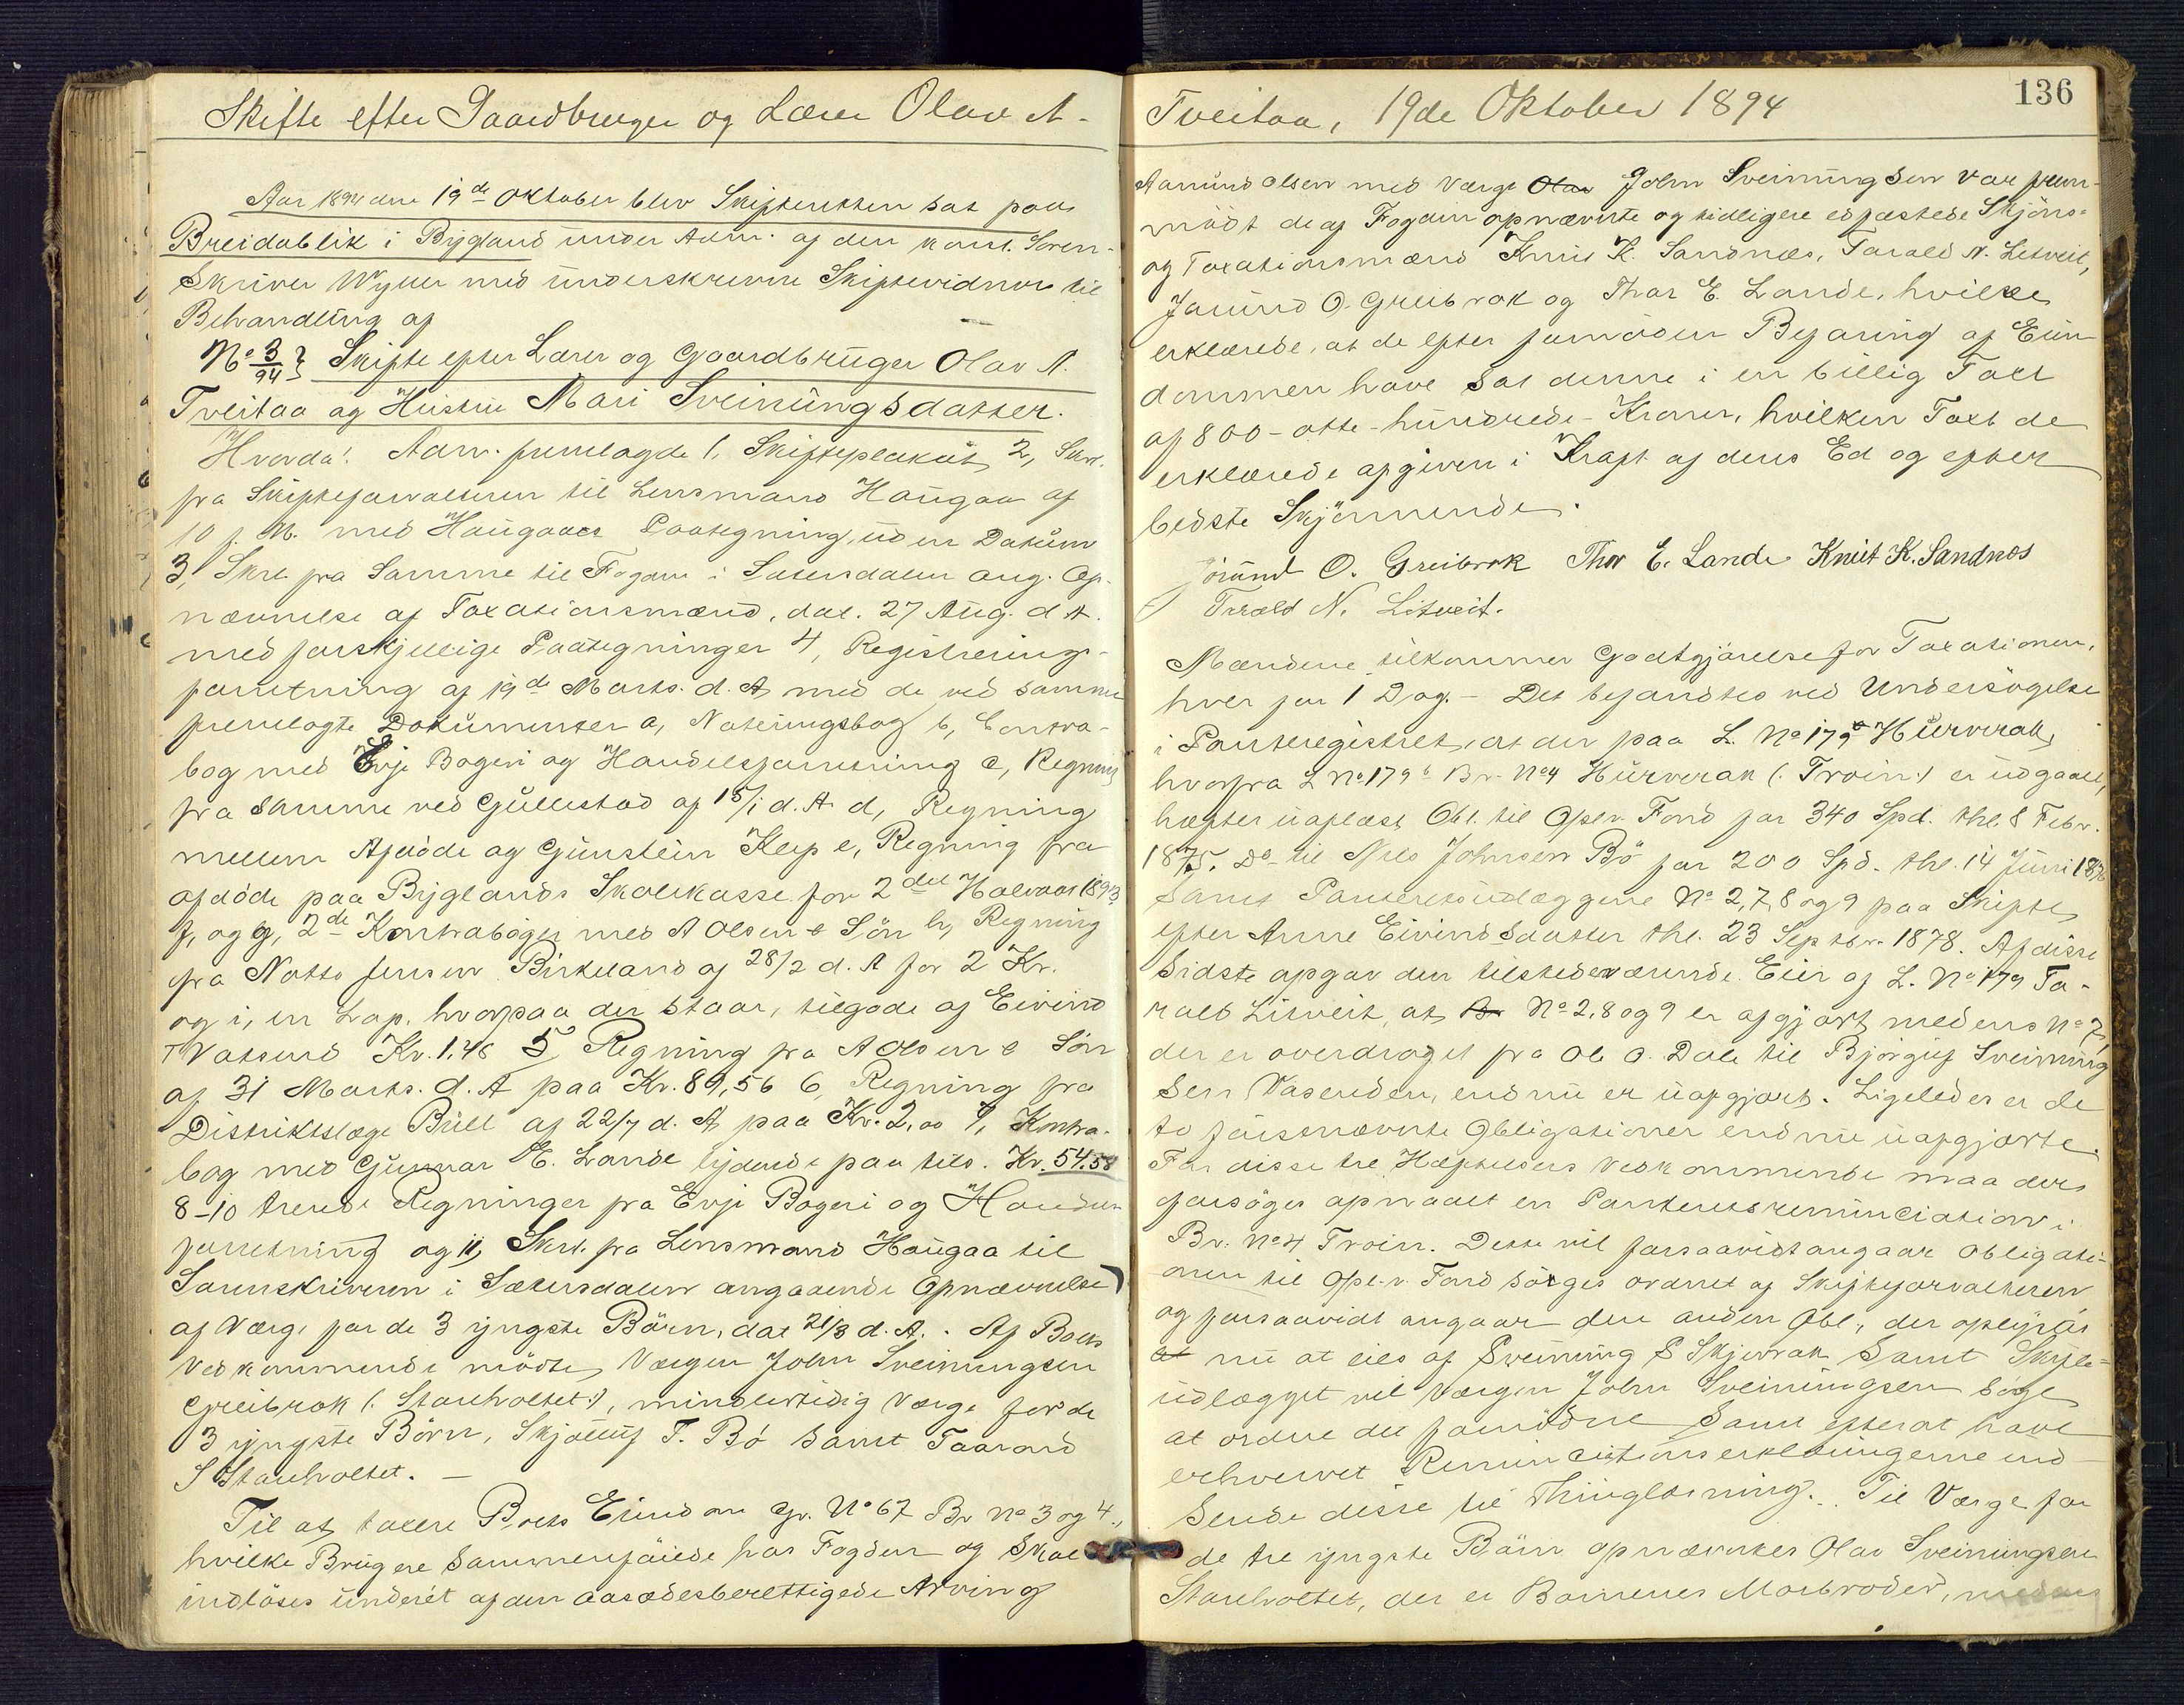 Skifte efter Gaardbruger og Lærer Olav A.
Aar 1894 den 19de Oktober blev Skifteretten sat paa
Breidablik i Bygland under Adm. af den konst. Soren-
skriver Wyller med underskrevne Skiftevidner til
Behandling af
No 3/94 } Skifte efter Lærer og Gaardbruger Olav A.
Tveitaa og Hustru Mari Sveinungsdatter.
Hvorda: Adm. fremlagde 1, Skifteplakat, 2, Skrl.
fra Skifteforvalteren til Lensmand Haugaa af
10 f. M. med Haugaas Paategning, uden Datum
3, Skrl. fra Samme til Fogden i Sætersdalen ang. Op-
nævnelse af Taxationsmænd, dat. 27 Aug. d. A.
med forskjellige Paategninger 4, Registrerings-
forretning af 19de Marts d. A. med de ved samme
fremlagte Dokumenter a, Noteringsbog b, Contra-
bog med Evje Bageri og Handelsforretning c, Regning
fra Samme ved Gullestad af 15/1 d. A. d, Regning
mellem Afdöde og Gunstein Keip e, Regning fra
afdöde paa Byglands Skolekasse for 2det Halvaar 1893,
f, og g, 2de Kontraböger med A Olsen & Sön h, Regning
fra Notto Jensen Birkeland af 28/2 d. A for 2 Kr.
og i, en Lap, hvorpaa der staar, tilgode af Eivind
T Vatsend Kr. 1,48 5, Regning fra A Olsen & Sön
af 31 Marts. d. A paa Kr. 89,56 6, Regning fra
Distriktslæge Bull af 22/7 d. A paa Kr. 2,00 7, Kontra-
bog med Gunnar E. Lande lydende paa tils. Kr. 54.58
8-10 trende Regninger fra Evje Bageri og Handels-
forretning og 11, Skrl. fra Lensmand Haugaa til
Sorenskriveren i Sætersdalen angaaende Opnævnelse
af Værge for de 3 yngste Börn, dat 21/3 d. A. . Af Boets
Vedkommende mödte, Værgen John Sveinungsen
Greibrok (: Stavholtet:), mindertidig Værge for de
3 yngste Börn, Skjölluf T. Bö samt Taarand
S Stavholtet. —
Til at taxere Boets Eiendom Gr. No 67 Br No 3 og 4,
hvilke Brugere Sammenföiede hos Fogden og skal
indlöses underet af den aasædesberettigede Arving
Tveitaa, 19de Oktober 1894
136
Aanund Olsen med Værge Olav John Sveinungsen var frem-
mödt de af Fogden opnævnte og tidligere edfæstede Skjöns-
og Taxationsmænd Knut K. Sandnes, Tarald N. Litveit,
Jorund O. Greibrok og Thor E. Lande, hvilke
erklærede, at de efter foretagen Befaring af Eien-
dommen have sat denne i en billig Taxt
af 800 - otte - hundrede - Kroner, hvilken Taxt de
erklærede afgiven i Kraft af deres Ed og efter
bedste Skjönnende.
Jorund O. Greibrok Thor E. Lande Knut K. Sandnes
Tarald N. Litveit.
Mændene tilkommer Godtgjörelse for Taxationen,
hver for 1 Dag. — Det befandtes ved Undersögelse
i Panteregistret, at der paa L. No 179a Hurverak,
hvorfra L No 179b Br. No 4 Hurverak (: Troin:) er udgaaet,
hæfter uaflæst Obl. til Oplv. Fond for 340 Spd. thl. 8 Febr.
1875. Do til Nils Johnsen Bö for 200 Spd. thl. 14 Juni 1876
Samt Panteretsudlæggene No 2, 7, 8 og 9 paa Skifte
efter Anne Eivindsdatter thl. 23 Septbr. 1878. Af disse
Sidste opgav den tilstedeværende Eier af L. No 179 Ta-
rald Litveit, at Br No 2, 8 og 9 er afgjort, medens No 7,
der er overdraget fra Ole O. Dale til Björguf Sveinung
Sen Vasenden, endnu er uafgjort. Ligeledes er de
to förstnævnte Obligationer endnu uafgjorte.
For disse tre Hæftelsers Vedkommende maa der
försöges opnaaet en Panteretsrenunciation i
Br. No 4 Troin. Dette vil forsaavidt angaar Obligati-
onen til Opl. v. Fond sörges ordnet af Skifteforvalteren
og forsaavidt angaar den anden Obl., der oplyses
at nu at eies af Sveinung S Skjevrak samt Skifte-
udlægget vil Værgen John Sveinungsen söge
at ordne det fornödne samt efterat have
erhvervet Renunciationserklæringerne ind-
sende disse til Thinglæsning. Til Værge for
de tre yngste Börn opnævnes Olav Sveinungsen
Stavholtet, der er Börnenes Morbroder, medens